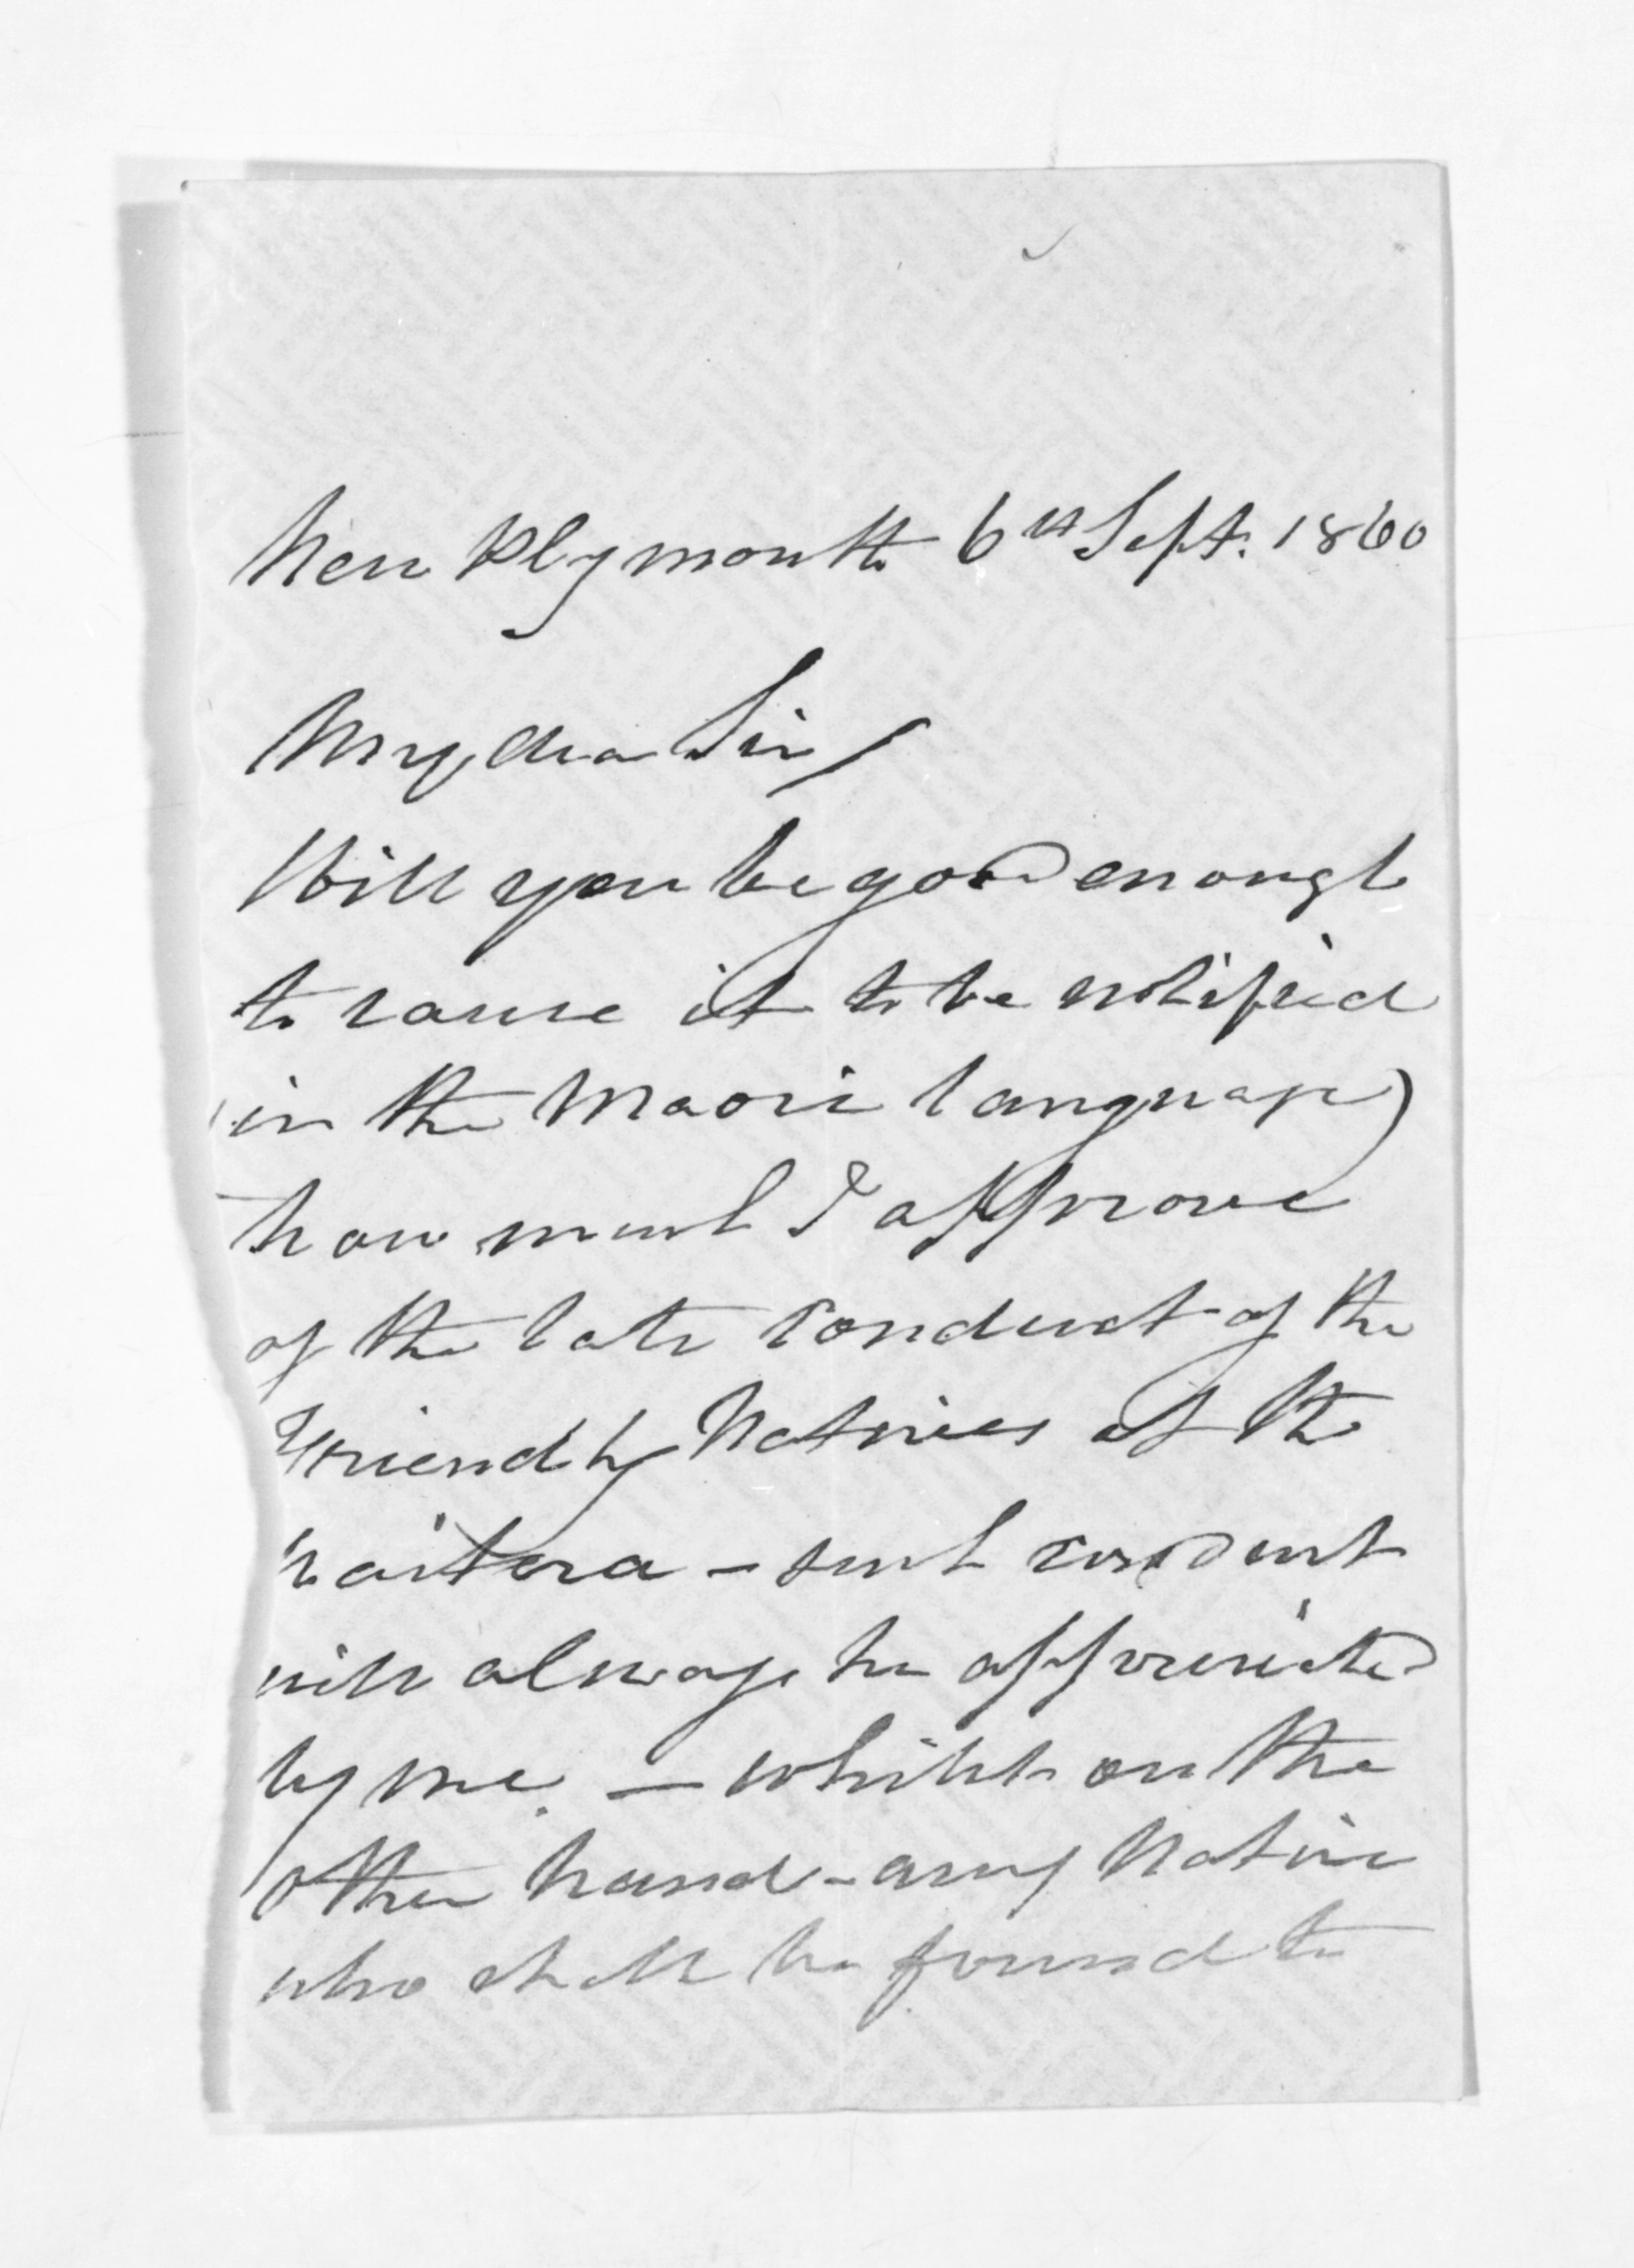 New Plymouth 6th Sept. 1860
My dear Sir /
Will you be good enough
to cause it to be notified
(in the Maori language)
how much I approve
of the late conduct of the
Friendly Natives at the
Waitara - such conduct
will always be appreciated
by me. - whilst on the
other hand - any Native
who shall be found to